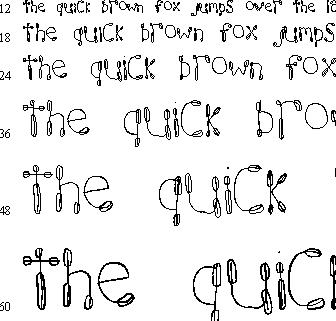 12 the quick brown fox jumps over the
18 the quick brown fox jumps
24 the quick brown fox
36 the quick bro
48 the quick
60 the quic